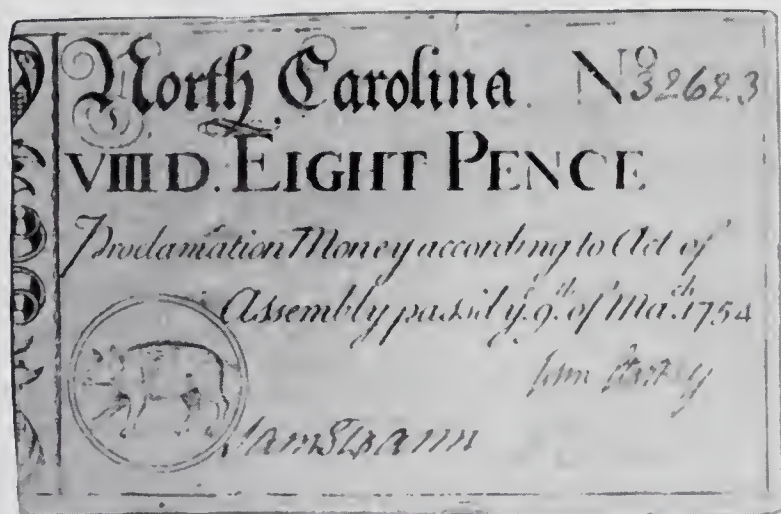 North Carolina. No 32623
VIII D. EIGHT PENCE
Proclamation Money according to Act of
Assembly passed ye. 9th. of Mar.ch 1754
Sam Swann